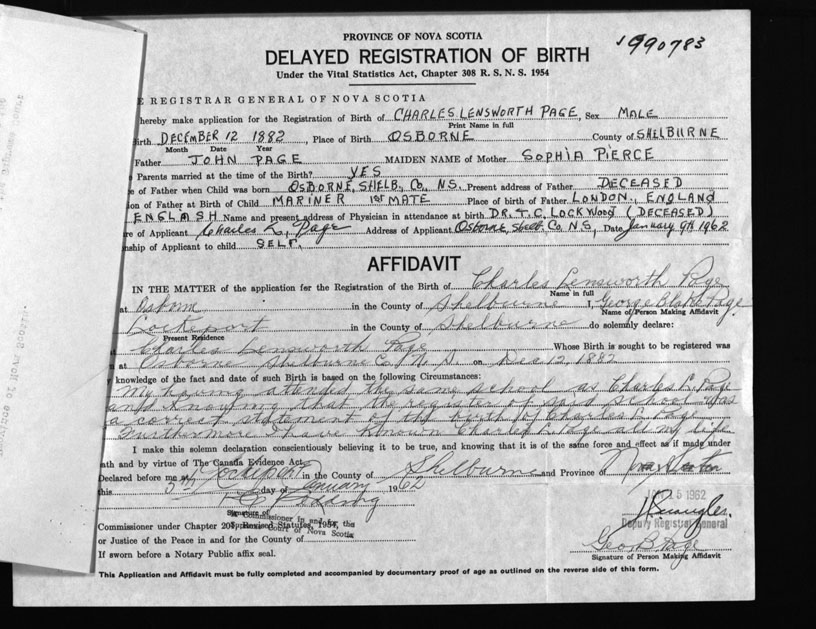 PROVINCE OF NOVA SCOTIA
1990783
DELAYED REGISTRATION OF BIRTH
Under the Vital Statistics Act, Chapter 308 R. S. N. S. 1954
E REGISTRAR GENERAL OF NOVA SCOTIA
hereby make application for the Registration of Birth of CHARLES LENSWORTH PAGE, Sex MALE
Print Name in full
Birth DECEMBER 12 1882, Place of Birth OSBORNE County of SHELBURNE
Month Date Year
Father JOHN PAGE MAIDEN NAME of Mother SOPHIA PIERCE
Parents married at time of the Birth? YES
e of Father when Child was born OSBORNE, SHELB, Co, NS. Present address of Father DECEASED
ion of Father at Birth of Child MARINER 1st MATE Place of birth of Father LONDON, ENGLAND
ENGLASH Name and present address of Physician in attendance at birth DR. T. C. LOCKWOOD (DECEASED)
re of Applicant Charles L. Page Address of Applicant Osborne, Shelb. Co N.S, Date January 9th 1962
nship of Applicant to child SELF.
AFFIDAVIT
IN THE MATTER of the application for the Registration of the Birth of Charles Lensworth Page
Name in full
at Osborne in the County of Shelburne I, George Blake Page
Name of Person Making Affidavit
Lockeport in the County of Shelburne do solemnly declare:
Present Residence
Charles Lensworth Page Whose Birth is sought to be registered was
at Osborne Shelburne Co, N. S. on Dec 12, 1882
y knowledge of the fact and date of such Birth is based on the following Circumstances:
My having attended the same school as Charles L. Page
and knowing that the register of said school was
a correct statement of the birth of Charles L. Page
Furthermore I have known Charles L. Page all my life
I make this solemn declaration conscientiously believing it to be true, and knowing that it is of the same force and effect as if made under
ath and by virtue of The Canada Evidence Act.
Declared before me at Lockeport in the County of Shelburne and Province of Nova Scotia
this day of January 1962
15 1962
Signature of
A Commissioner in and for the
Supreme Court of Nova Scotia
Deputy Registrar General
Commissioner under Chapter 207 Revised Statutes, 1954,
or Justice of the Peace in and for the County of
Geo B Page
Signature of Person Making Affidavit
If sworn before a Notary Public affix seal.
This Application and Affidavit must be fully completed and accompanied by documentary proof of age as outlined on the reverse side of this form.